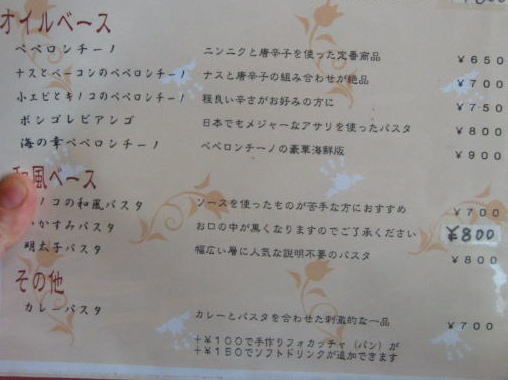 オイルベース
ペペロンチーノ ニンニクと唐辛子を使った定番商品 ¥650
ナスとベーコンのペペロンチーノ ナスと唐辛子の組み合わせが絶品 ¥700
小エビとキノコのペペロンチーノ 程良い辛さがお好みの方に ¥750
ボンゴレビアンゴ 日本でもメジャーなアサリを使ったパスタ ¥800
海の幸ペペロンチーノ ペペロンチーノの豪華海鮮版 ¥900
和風ベース
ノコの和風パスタ ソースを使ったものが苦手な方におすすめ ¥700
かすみパスタ お口の中が黒くなりますのでご了承ください ¥800
明太子パスタ 幅広い層に人気な説明不要のパスタ ¥800
その他
カレーパスタ カレーとパスタを合わせた刺激的な一品 ¥700
+¥100で手作りフォカッチャ(パン)が
+¥150でソフトドリンクが追加できます